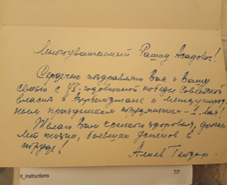 Многоуважаемый Рашид Агадович!
Сердечно поздравляю Вас и Вашу
семью с 48-годовщиной победы Советской
власти в Азербайджане и международ-
ным праздником трудящихся - 1 мая!
Желаю Вам крепкого здоровья, долгих
лет жизни, больших успехов в
труде!
Алиев
_instructions
7/7